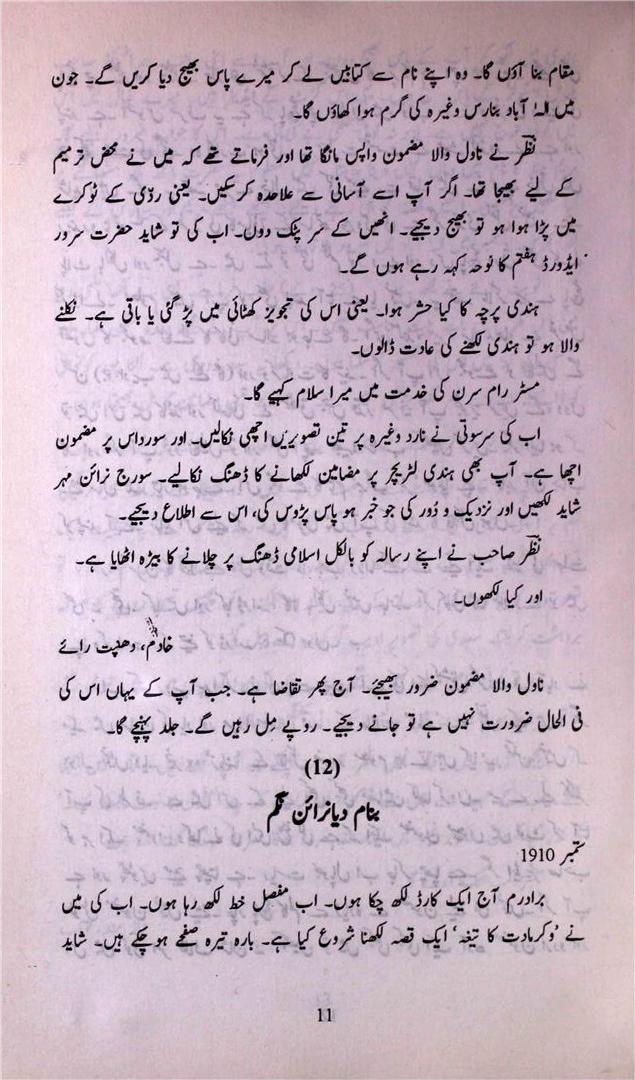 مقام بنا آؤں گا۔ وہ اپنے نام سے کتابیں لے کر میرے پاس بھیج دیا کریں گے۔ جون
میں الہٰ آباد بنارس وغیرہ کی گرم ہوا کھاؤں گا۔
نظر نے ناول والا مضمون واپس مانگا تھا اور فرماتے تھے کہ میں نے محض ترمیم
کے لیے بھیجا تھا۔ اگر آپ اسے آسانی سے علاحدہ کرسکیں۔ یعنی ردّی کے ٹوکرے
میں پڑا ہوا ہو تو بھیج دیجیے۔ انھیں کے سر پٹک دوں۔ اب کی تو شاید حضرت سرور
ایڈورڈ ہفتم کا نوحہ کہہ رہے ہوں گے۔
ہندی پرچہ کا کیا حشر ہوا۔ یعنی اس کی تجویز کھٹائی میں پڑ گئی یا باقی ہے۔ نکلنے
والا ہو تو ہندی لکھنے کی عادت ڈالوں۔
مسٹر رام سرن کی خدمت میں میرا سلام کہیے گا۔
اب کی سرسوتی نے نارد وغیرہ پر تین تصویریں اچھی نکالیں۔ اور سورداس پر مضمون
اچھا ہے۔ آپ بھی ہندی لٹریچر پر مضامین لکھانے کا ڈھنگ نکالیے۔ سورج نرائن مہر
شاید لکھیں اور نزدیک و دُور کی جو خبر ہو پاس پڑوس کی، اس سے اطلاع دیجیے۔
نظر صاحب نے اپنے رسالہ کو بالکل اسلامی ڈھنگ پر چلانے کا بیڑہ اٹھایا ہے۔
اور کیا لکھوں۔
خادم، دھنپت رائے
ناول والا مضمون ضرور بھیجئے۔ آج پھر تقاضا ہے۔ جب آپ کے یہاں اس کی
فی الحال ضرورت نہیں ہے تو جانے دیجیے۔ روپے مِل رہیں گے۔ جلد پہنچے گا۔
(12)
بنام دیانرائن نگم
ستمبر 1910
برادرم آج ایک کارڈ لکھ چکا ہوں۔ اب مفصل خط لکھ رہا ہوں۔ اب کی میں
نے ’وکرمادت کا تیغہ‘ ایک قصہ لکھنا شروع کیا ہے۔ بارہ تیرہ صفحے ہوچکے ہیں۔ شاید
11